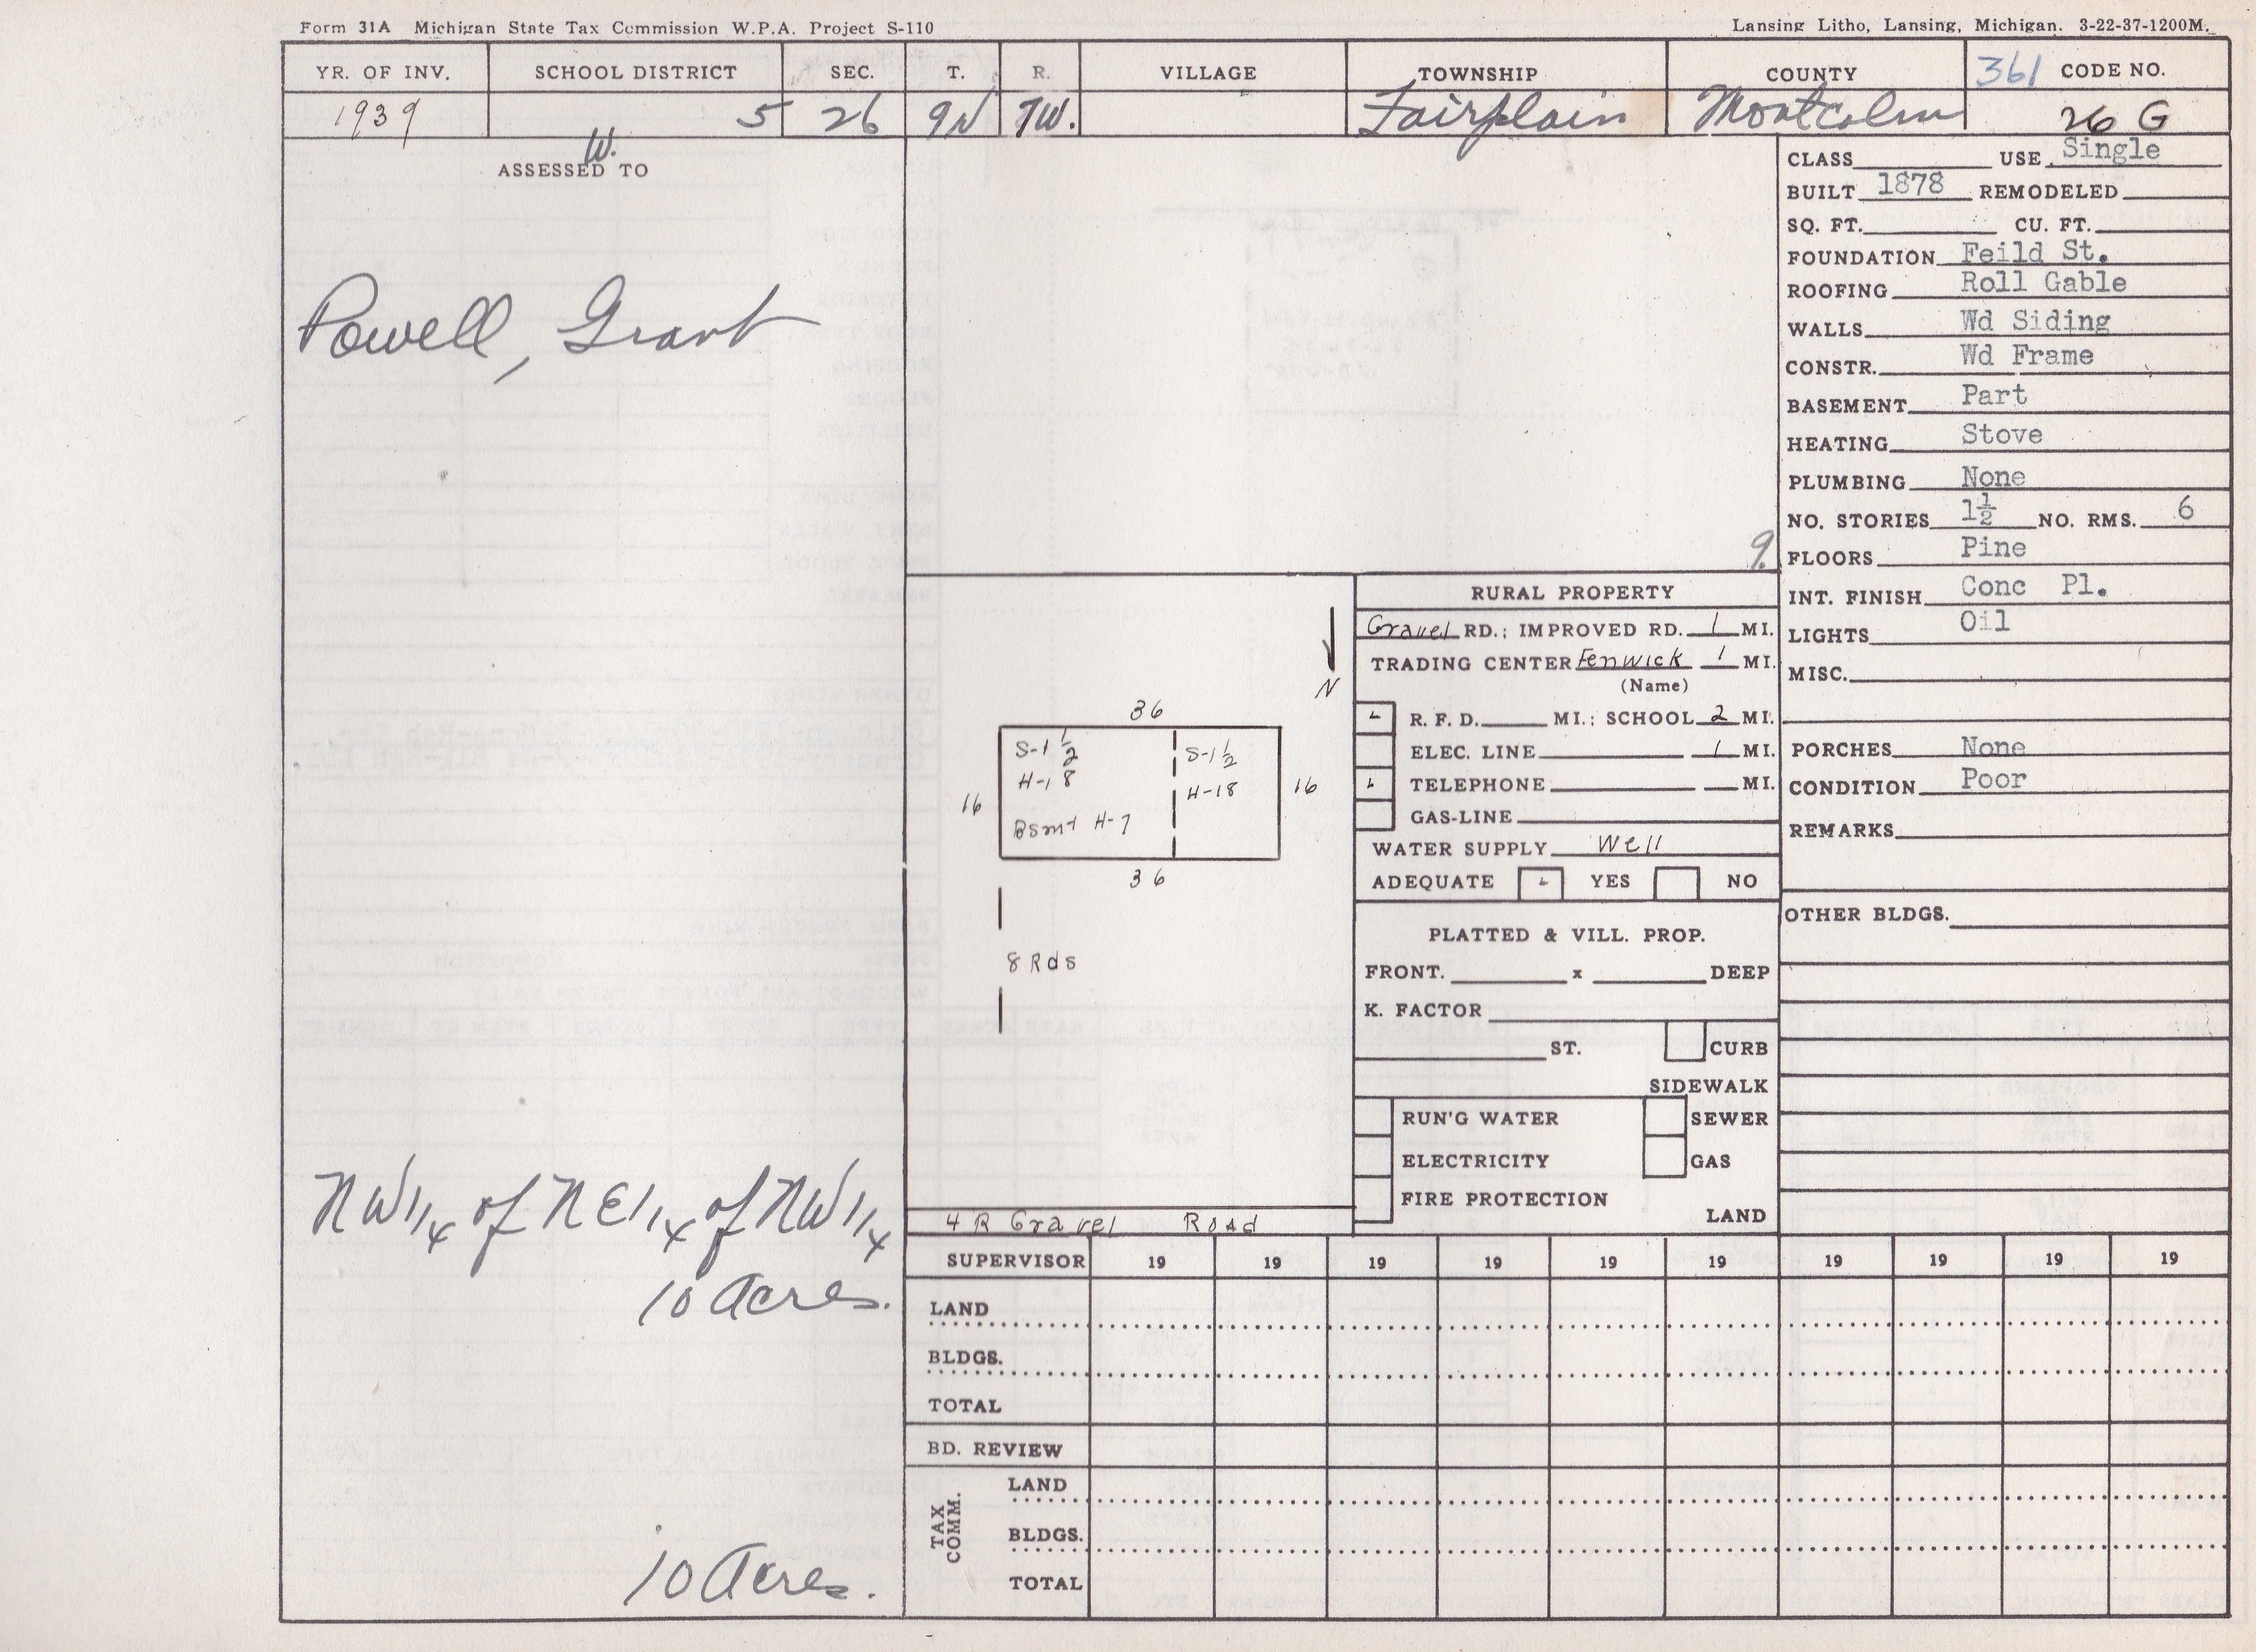 Form 31A Michigan State Tax Commission W.P.A. Project S-110
Lansing Litho, Lansing, Michigan. 3-22-37-1200M.
YR. OF INV. SCHOOL DISTRICT SEC. T. R. VILLAGE TOWNSHIP COUNTY 361 CODE NO.
1939 5 26 9N 7W. Fairplain Montcalm 26 G
W.
ASSESSED TO
Powell, Grant
NW1/4 of NE1/4 of NW1/4
10 Acres.
10 Acres.
9.
N
36
S-1 1/2
H-18
Bsmt H-7
S-1 1/2
H-18
16
16
36
8 Rds
4 R Gravel Road
RURAL PROPERTY
Gravel RD.; IMPROVED RD. 1 MI.
TRADING CENTER Fenwick 1 MI.
(Name)
R. F. D. MI.; SCHOOL 2 MI.
ELEC. LINE 1 MI.
TELEPHONE MI.
GAS-LINE
WATER SUPPLY Well
ADEQUATE YES NO
PLATTED & VILL. PROP.
FRONT. x DEEP
K. FACTOR
ST. CURB
SIDEWALK
RUN'G WATER SEWER
ELECTRICITY GAS
FIRE PROTECTION
LAND
CLASS USE Single
BUILT 1878 REMODELED
SQ. FT. CU. FT.
FOUNDATION Feild St.
ROOFING Roll Gable
WALLS Wd Siding
CONSTR. Wd Frame
BASEMENT Part
HEATING Stove
PLUMBING None
NO. STORIES 1½ NO. RMS. 6
FLOORS Pine
INT. FINISH Conc Pl.
LIGHTS Oil
MISC.
PORCHES None
CONDITION Poor
REMARKS
OTHER BLDGS.
SUPERVISOR 19 19 19 19 19 19 19 19 19 19
LAND
BLDGS.
TOTAL
BD. REVIEW
TAX COMM.
LAND
BLDGS.
TOTAL